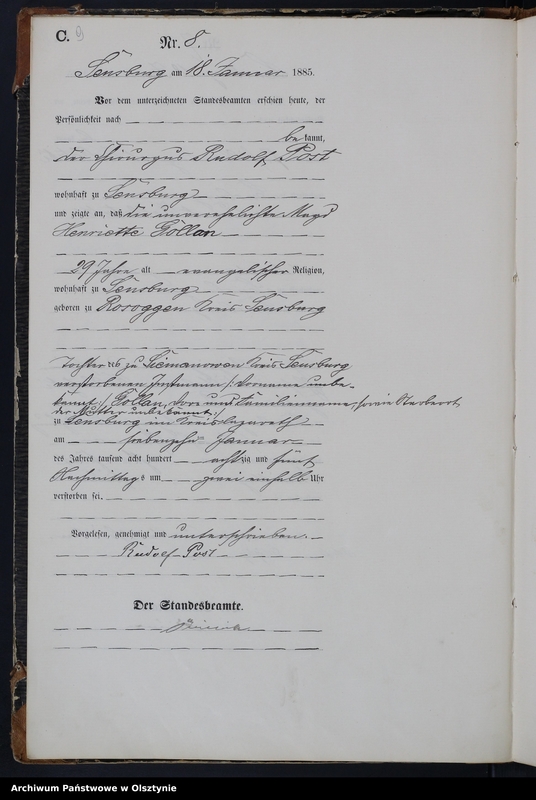 C. 9
Nr. 8.
Sensburg am 18. Januar 1885.
Vor dem unterzeichneten Standesbeamten erschien heute, der
Persönlichkeit nach
bekannt,
der Chirurgus Rudolf Post
wohnhaft zu Sensburg
und zeigte an, daß die unverehelichte Magd
Henriette Gollan
29 Jahre alt evangelischer Religion,
wohnhaft zu Sensburg
geboren zu Rosoggen Kreis Sensburg
Tochter des zu Siemanowen Kreis Sensburg
verstorbenen Instmann /: Vorname unbe-
kannt :/ Gollan, Vor und Familienname, sowie Sterbeort
der Mutter unbekannt :/
zu Sensburg im Kreislazareth
am siebenzehnten Januar
des Jahres tausend acht hundert achtzig und fünf
Nachmittags um zwei einhalb Uhr
verstorben sei.
Vorgelesen, genehmigt und unterschrieben.
Rudolf Post
Der Standesbeamte.
Archiwum Państwowe w Olsztynie